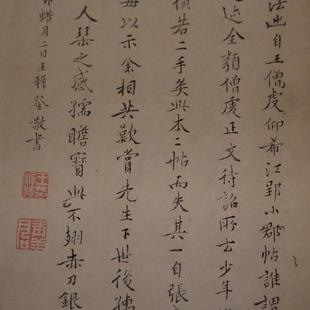 法出自王僧虔仰希江郢小郡帖誰謂
迹全類僧虔正文待詔所云少年
積若二手矣此本二帖而失其一自張
每以示余相共歎賞先生下世後孺
人琴之感孺瞻寶此不翅赤刀銀
臘月二日王穉登敬書